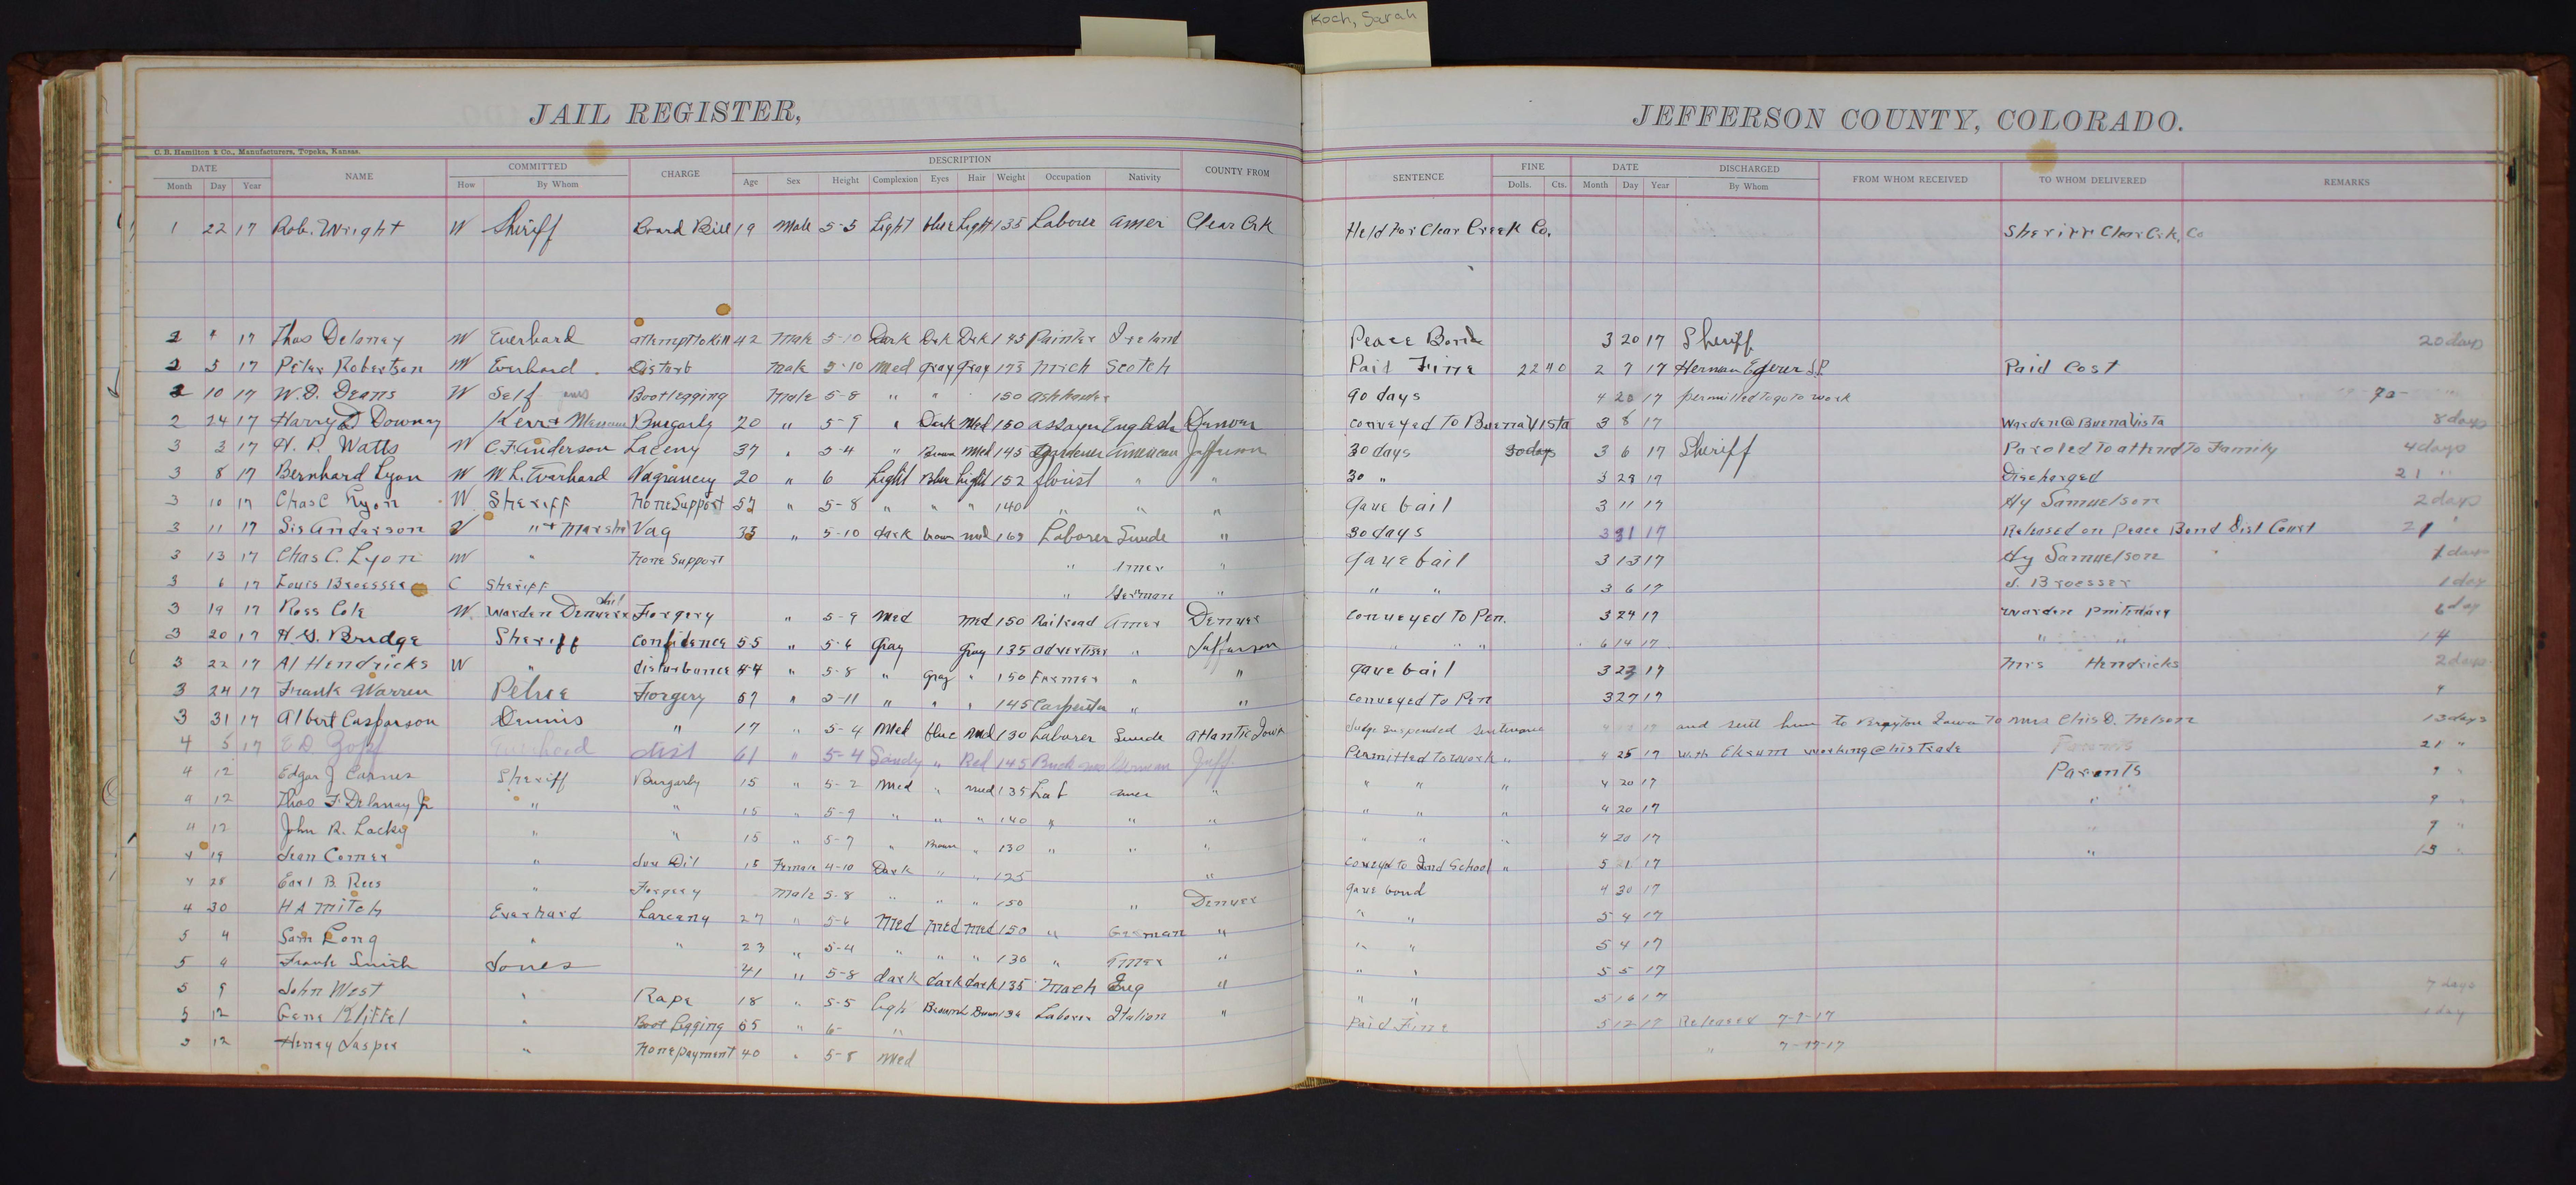 Koch, Sarah
JAIL REGISTER, JEFFERSON COUNTY, COLORADO.
C. B. Hamilton & Co., Manufacturers, Topeka, Kansas.
DATE NAME COMMITTED CHARGE DESCRIPTION COUNTY FROM SENTENCE FINE DATE DISCHARGED FROM WHOM RECEIVED TO WHOM DELIVERED REMARKS
Month Day Year How By Whom Age Sex Height Complexion Eyes Hair Weight Occupation Nativity Dolls. Cts. Month Day Year By Whom
1 22 17 Rob. Wright W Sheriff Board Bill 19 Male 5-5 Light blue Light 135 Laborer Amer Clear Crk Held For Clear Creek Co. Sheriff Clear Crk, Co
2 17 Thos Delaney W Everhard attempt to Kill 42 Male 5-10 Dark Drk Drk 185 Painter Ireland Peace Bond 3 20 17 Sheriff 20 days
2 5 17 Peter Robertson W Everhard Disturb Male 5-10 Med Gray Gray 175 Scotch Paid Fine 22 40 2 7 17 Herman J.P. Paid Cost
2 10 17 W. D. Deans W Self Bootlegging Male 5-8 " " 150 90 days 4 20 17 permitted to go to work
2 24 17 Harry D Downay Kerr + Burgarly 20 " 5-9 " Dark Med 150 assayer English Denver conveyed to Buena Vista 3 8 17 Warden @ Buena Vista 8 days
3 3 17 H. P. Watts W C. F. Anderson Laceny 37 " 5-4 " Brown Med 145 Gardener American Jefferson 30 days 30 days 3 6 17 Sheriff Paroled to attend to Family 4 days
3 8 17 Bernhard Lyon W W. L. Everhard Vagrancy 20 " 6 Light Blue Light 152 florist " " 30 " 3 29 17 Discharged 21 "
3 10 17 Chas C Lyon W Sheriff None Support 52 " 5-8 " " " 140 " " " gave bail 3 11 17 Hy Samuelson 2 days
3 11 17 Sis Anderson " + Marshal Vag 35 " 5-10 dark brown med 169 Laborer Swede " 30 days 3 31 17 Released on Peace Bond Dist Court 21 "
3 13 17 Chas C. Lyon W " None Support " Amer " gave bail 3 13 17 Hy Samuelson 1 day
3 6 17 Louis Broesser C Sheriff " German " " " 3 6 17 J. Broesser 1 day
3 19 17 Ross Cole W. Warden Denver Forgery " 5-9 Med Med 150 Railroad Amer Denver conveyed to Pen. 3 24 17 Warden 6 day
3 20 17 Bridge Sheriff confidence 55 " 5-6 Gray Gray 135 advertiser " Jefferson " " " 6 14 17 " " 14
3 22 17 Al Hendricks W " disturbance 44 " 5-8 " gray " 150 Farmer " " gave bail 3 23 17 Mrs Hendricks 2 days
3 24 17 Frank Warren Petree Forgery 57 " 5-11 " " " 145 Carpenter " " conveyed to Pen 3 27 17
3 31 17 Albert Casparson Dennis " 17 " 5-4 Med blue Med 130 Laborer Swede Atlantic Iowa Judge suspended sentence and sent him to Brayton Iowa to Mrs Chis D. Nelson 13 days
4 5 17 E D Zopf Everhard dist 61 " 5-4 Sandy " Red 145 German Jeff. Permitted to work " 4 25 17 with working @ his trade Parents 21 "
4 12 Edgar J Carnes Sheriff Burgarly 15 " 5-2 Med " med 135 Lab amer " " " " 4 20 17 Parents 9 "
4 12 Thos F. Delaney Jr " " 15 " 5-9 " " " 140 " " " " " " 4 20 17 " 9 "
4 12 John R. Lackey " " 15 " 5-7 " Brown " 130 " " " " " " 4 20 17 " 9 "
4 19 Jean Comer " Juv Dil 15 Female 4-10 Dark " " 125 " conveyd to Ind School " 5 1 17 " 13 "
4 28 Earl B. Rees " Forgery Male 5-8 " " " 150 " Denver gave bond 4 30 17
4 30 H A Mitch Everhard Larceny 27 " 5-6 Med Med Med 150 " German " " " 5 4 17
5 4 Sam Long " " 23 " 5-4 " " " 130 " Amer " " " 5 4 17
5 Frank Smith Jones 41 " 5-8 dark dark dark 135 Mach Eng " " " 5 5 17
5 9 John West " Rape 18 " 5-5 Ligh Brown Laborer Italion " " " 5 16 17 7 days
5 12 Gene " Boot Legging 65 " 6- " Paid Fine 5 12 17 Released 7-9-17 1 day
5 12 Henry Jasper " None payment 40 " 5-8 Med " 7-17-17